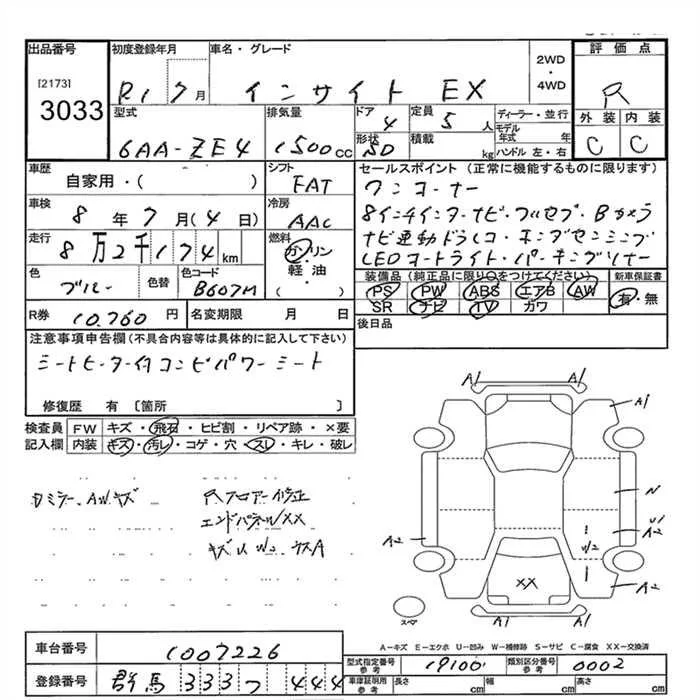 出品番号 初度登録年月 車名・グレード 2WD・4WD 評価点
[2173]
3033
R1 7月 インサイト EX R
型式 排気量 ドア 4 定員 5人 ディーラー・並行
6AA-ZE4 1500cc 形状 SD 積載 kg モデル年式 年 ハンドル 左・右
外装 内装
C C
車歴 シフト セールスポイント (正常に機能するものに限ります)
自家用・( ) FAT
ワンオーナー
車検 8年7月(4日) 冷房 AAC
8インチインターナビ・フルセグ・Bカメラ
ナビ連動ドラレコ・ホンダセンシング
LEDオートライト・パーキングソナー
走行 8万2千174km 燃料 ガソリン・軽油・( )
色 ブルー 色替 色コード B607M
装備品 (純正品に限り○をつけてください) 新車保証書
PS PW ABS エアB AW 有・無
SR ナビ TV カワ
R券 10,760円 名変期限 月 日
後日品
注意事項申告欄(不具合内容等は具体的に記入して下さい)
シートヒーター付コンビパワーシート
修復歴 有 [箇所 ]
検査員記入欄
FW キズ・飛石・ヒビ割・リペア跡・×要
内装 キズ・汚レ・コゲ・穴・スレ・キレ・破レ
ミラー、AWキズ
Rフロアー修正
エンドパネルXX
キズU W2
A1 A1
A1 A1
N
U1
A2 A2
W2
A2
XX
スペア
A-キズ E-エクボ U-凹み W-補修跡 S-サビ C-腐食 XX-交換済
車台番号 1007226
型式指定番号 参考 19106 類別区分番号 参考 0002
登録番号 群馬 333 フ 444
車庫証明用 参考 長さ cm 幅 cm 高さ cm